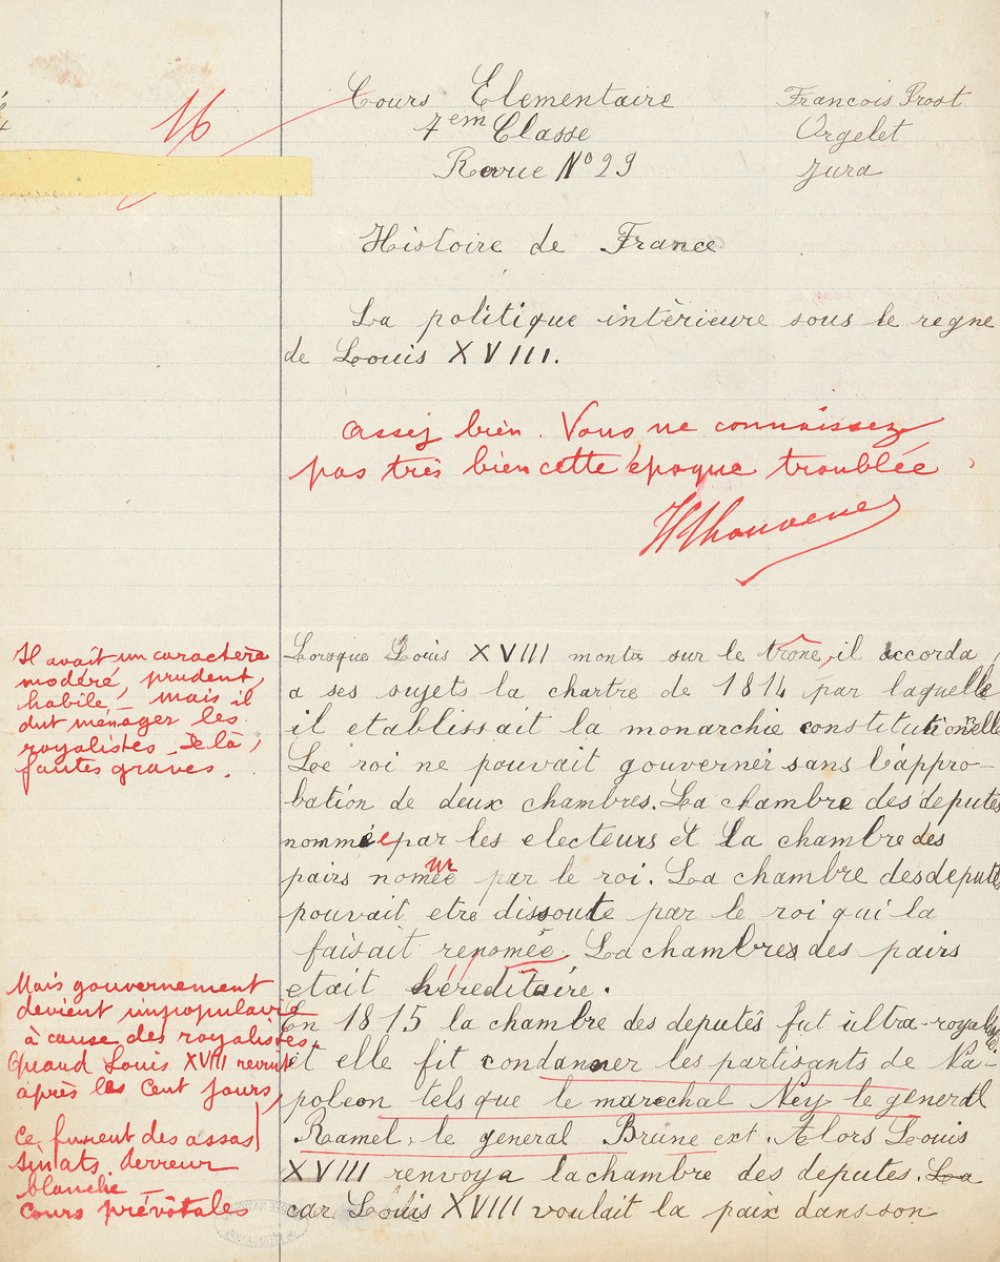 16
Cours Elementaire
7em Classe
Revue No 29
Francois Prost
Orgelet
Jura
Histoire de France
La politique intèrieure sous le regne
de Louis XVIII.
assez bien. Vous ne connaissez
pas très bien cette époque troublée
Il avait un caractère
modéré, prudent,
habile, – mais il
dut ménager les
royalistes – De là,
fautes graves.
Lorsque Louis XVIII monta sur le trône, il accorda
a ses sujets la chartre de 1814 par laquelle
il etablissait la monarchie constitutionnelle
Le roi ne pouvait gouverner sans l'appro-
bation de deux chambres. La chambre des deputés
nommée par les electeurs et la chambre des
pairs nomée par le roi. La chambre des deputés
pouvait etre dissoute par le roi qui la
faisait renomée. La chambres des pairs
etait héreditaire.
Mais gouvernement
devient impopulaire
à cause des royalistes.
Quand Louis XVIII revint
après les Cent jours,
En 1815 la chambre des deputés fut ultra-royaliste
et elle fit condanner les partisants de Na-
poleon tels que le marechal Ney le general
Ramel, le general Brune ext. Alors Louis
XVIII renvoya la chambre des deputes. La
car Louis XVIII voulait la paix dans son
Ce furent des assas
sinats. terreur
blanche –
Cours prévôtales